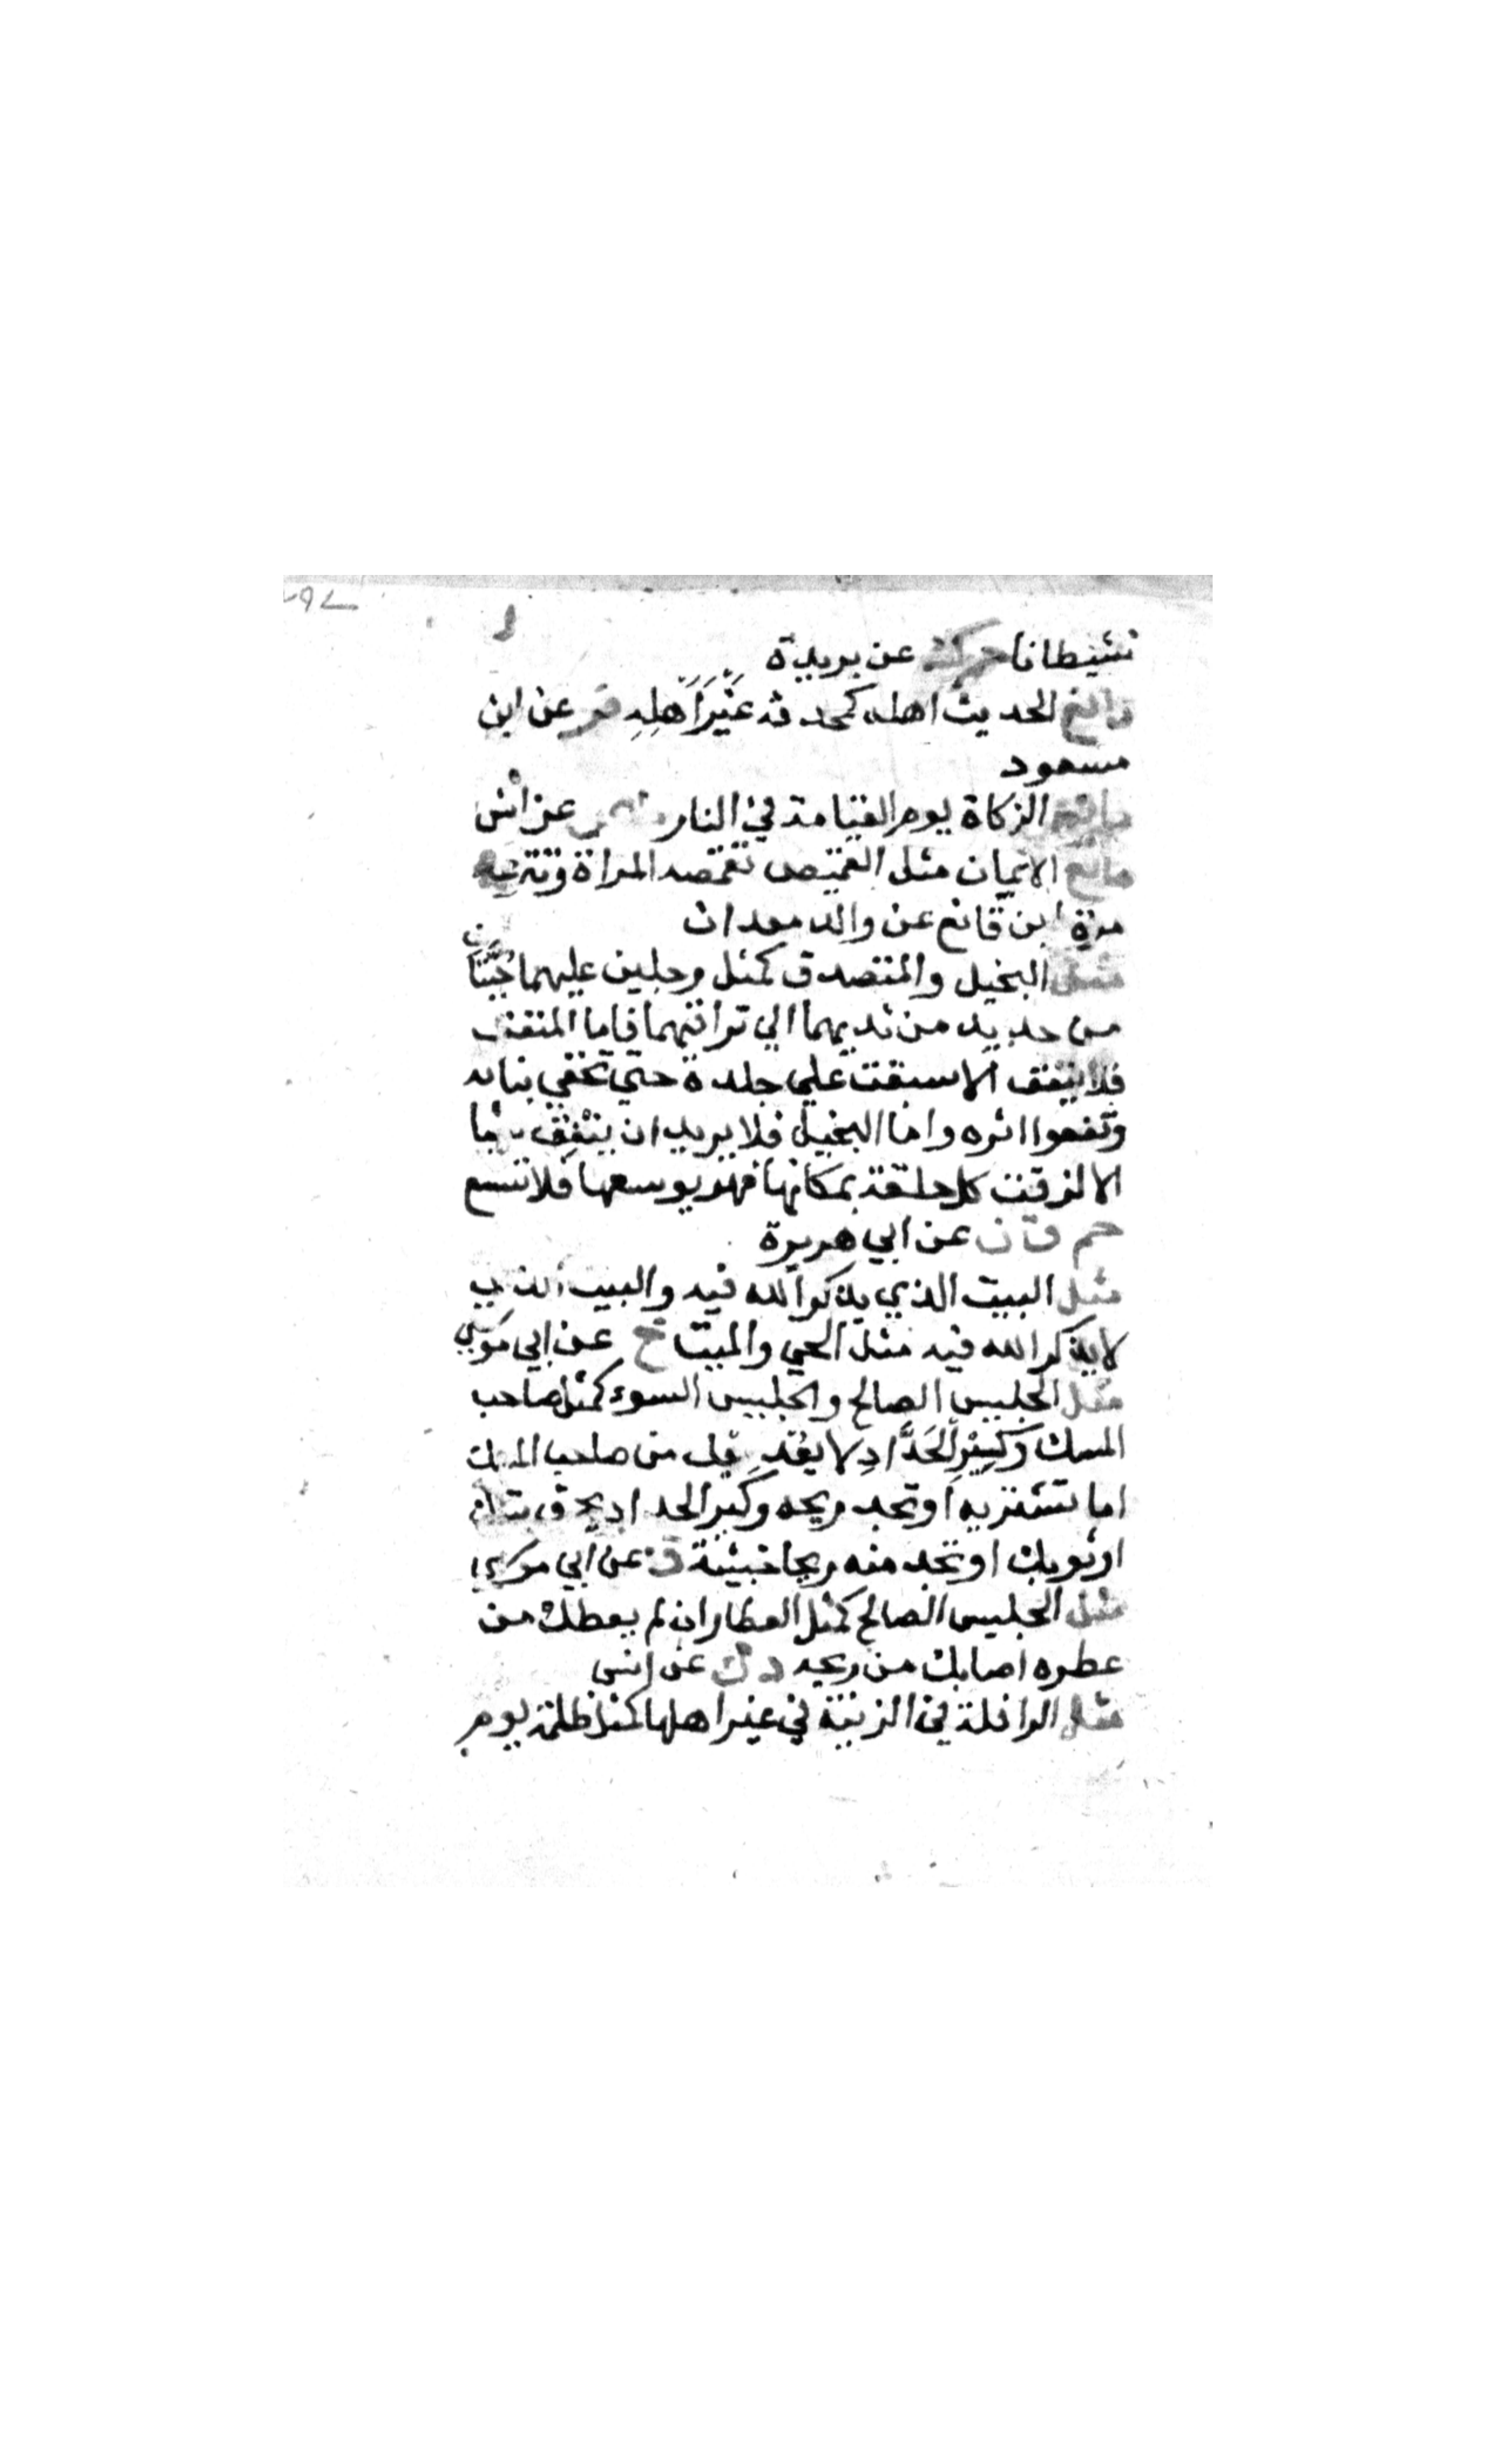 شيطانا حم ك عن بريدة
مانع الحديث اهله كمحدثه غَيْرَ اَهْلِهِ فر عن ابن
مسعود
مانع الزكاة يوم القيامة في النار عن انس
مانع الايمان مثل القميص تقمصه المراة وتنزعه
مرة ابن قانع عن والد معدان
مثل البخيل والمتصدق كمثل رجلين عليهما جُبَّتَانِ
من حديد من ثديهما الي تراقيهما فاما المنفق
فلا ينفق الا سبقت علي جلده حتي تخفي بنانه
وتعفوا اثره واما البخيل فلا يريد ان ينفق شيا
الا لزقت كل حلقة بمكانها فهو يوسعها فلا تتسع
حم ق ت ن عن ابي هريرة
مثل البيت الذي يذكر الله فيه والبيت الذي
لا يذكر الله فيه مثل الحي والميت خ عن ابي موسي
مثل الجليس الصالح والجليس السوء كمثل صاحب
المسك وَكِيْرِ الحَدَّادِ لا يعْدِمك من صاحب المسك
اما تشتريه او تجد ريحه وكير الحداد يحرق بيتك
او ثوبك او تجد منه ريحا خبيثة خ عن ابي موسي
مثل الجليس الصالح كمثل العطار ان لم يعطك من
عطره اصابك من ريحه د ك عن انس
مثل الرافلة في الزينة في غير اهلها كمثل ظلمة يوم